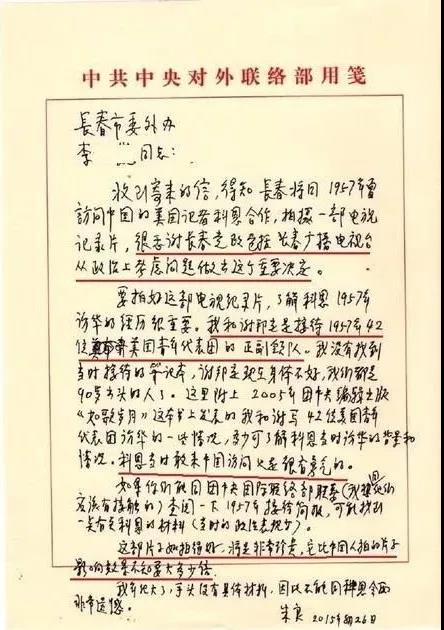 中共中央对外联络部用笺
長春市委外办
李 同志：
收到寄来的信，得知長春将同1957年曾
訪问中国的美国记者科恩合作，拍摄一部电视
记录片，很感谢長春党政包括长春广播电视台
从政治上考虑问题做出这个重要决定。
要拍好这部电视纪录片，了解科恩1957年
访华的经历很重要。我和谢邦定是接待1957年42
位美国青年代表团的正副领队。我没有找到
当时接待的笔记本，谢邦定现在身体不好，我们都是
90岁出头的人了。这里附上2005年团中央编辑出版
《如歌岁月》这本书上发表的我和谢写42位美国青年
代表团访华的一些情况，多少可了解科恩当时访华的背景和
情况。科恩当时敢来中国访问是很有勇气的。
如果你们能同团中央国际联络部联系（我想
应该有接触的）查阅一下1957年接待简报，可能找到
一些有关科恩的材料（当时的政治表现等）
这部片子如拍得好，将是非常珍贵，它比中国人拍的片子
影响效果不知要大多少倍。
我年纪大了，手头没有具体材料，因此不能同科恩会面
非常遗憾。
朱良 2015年8月26日